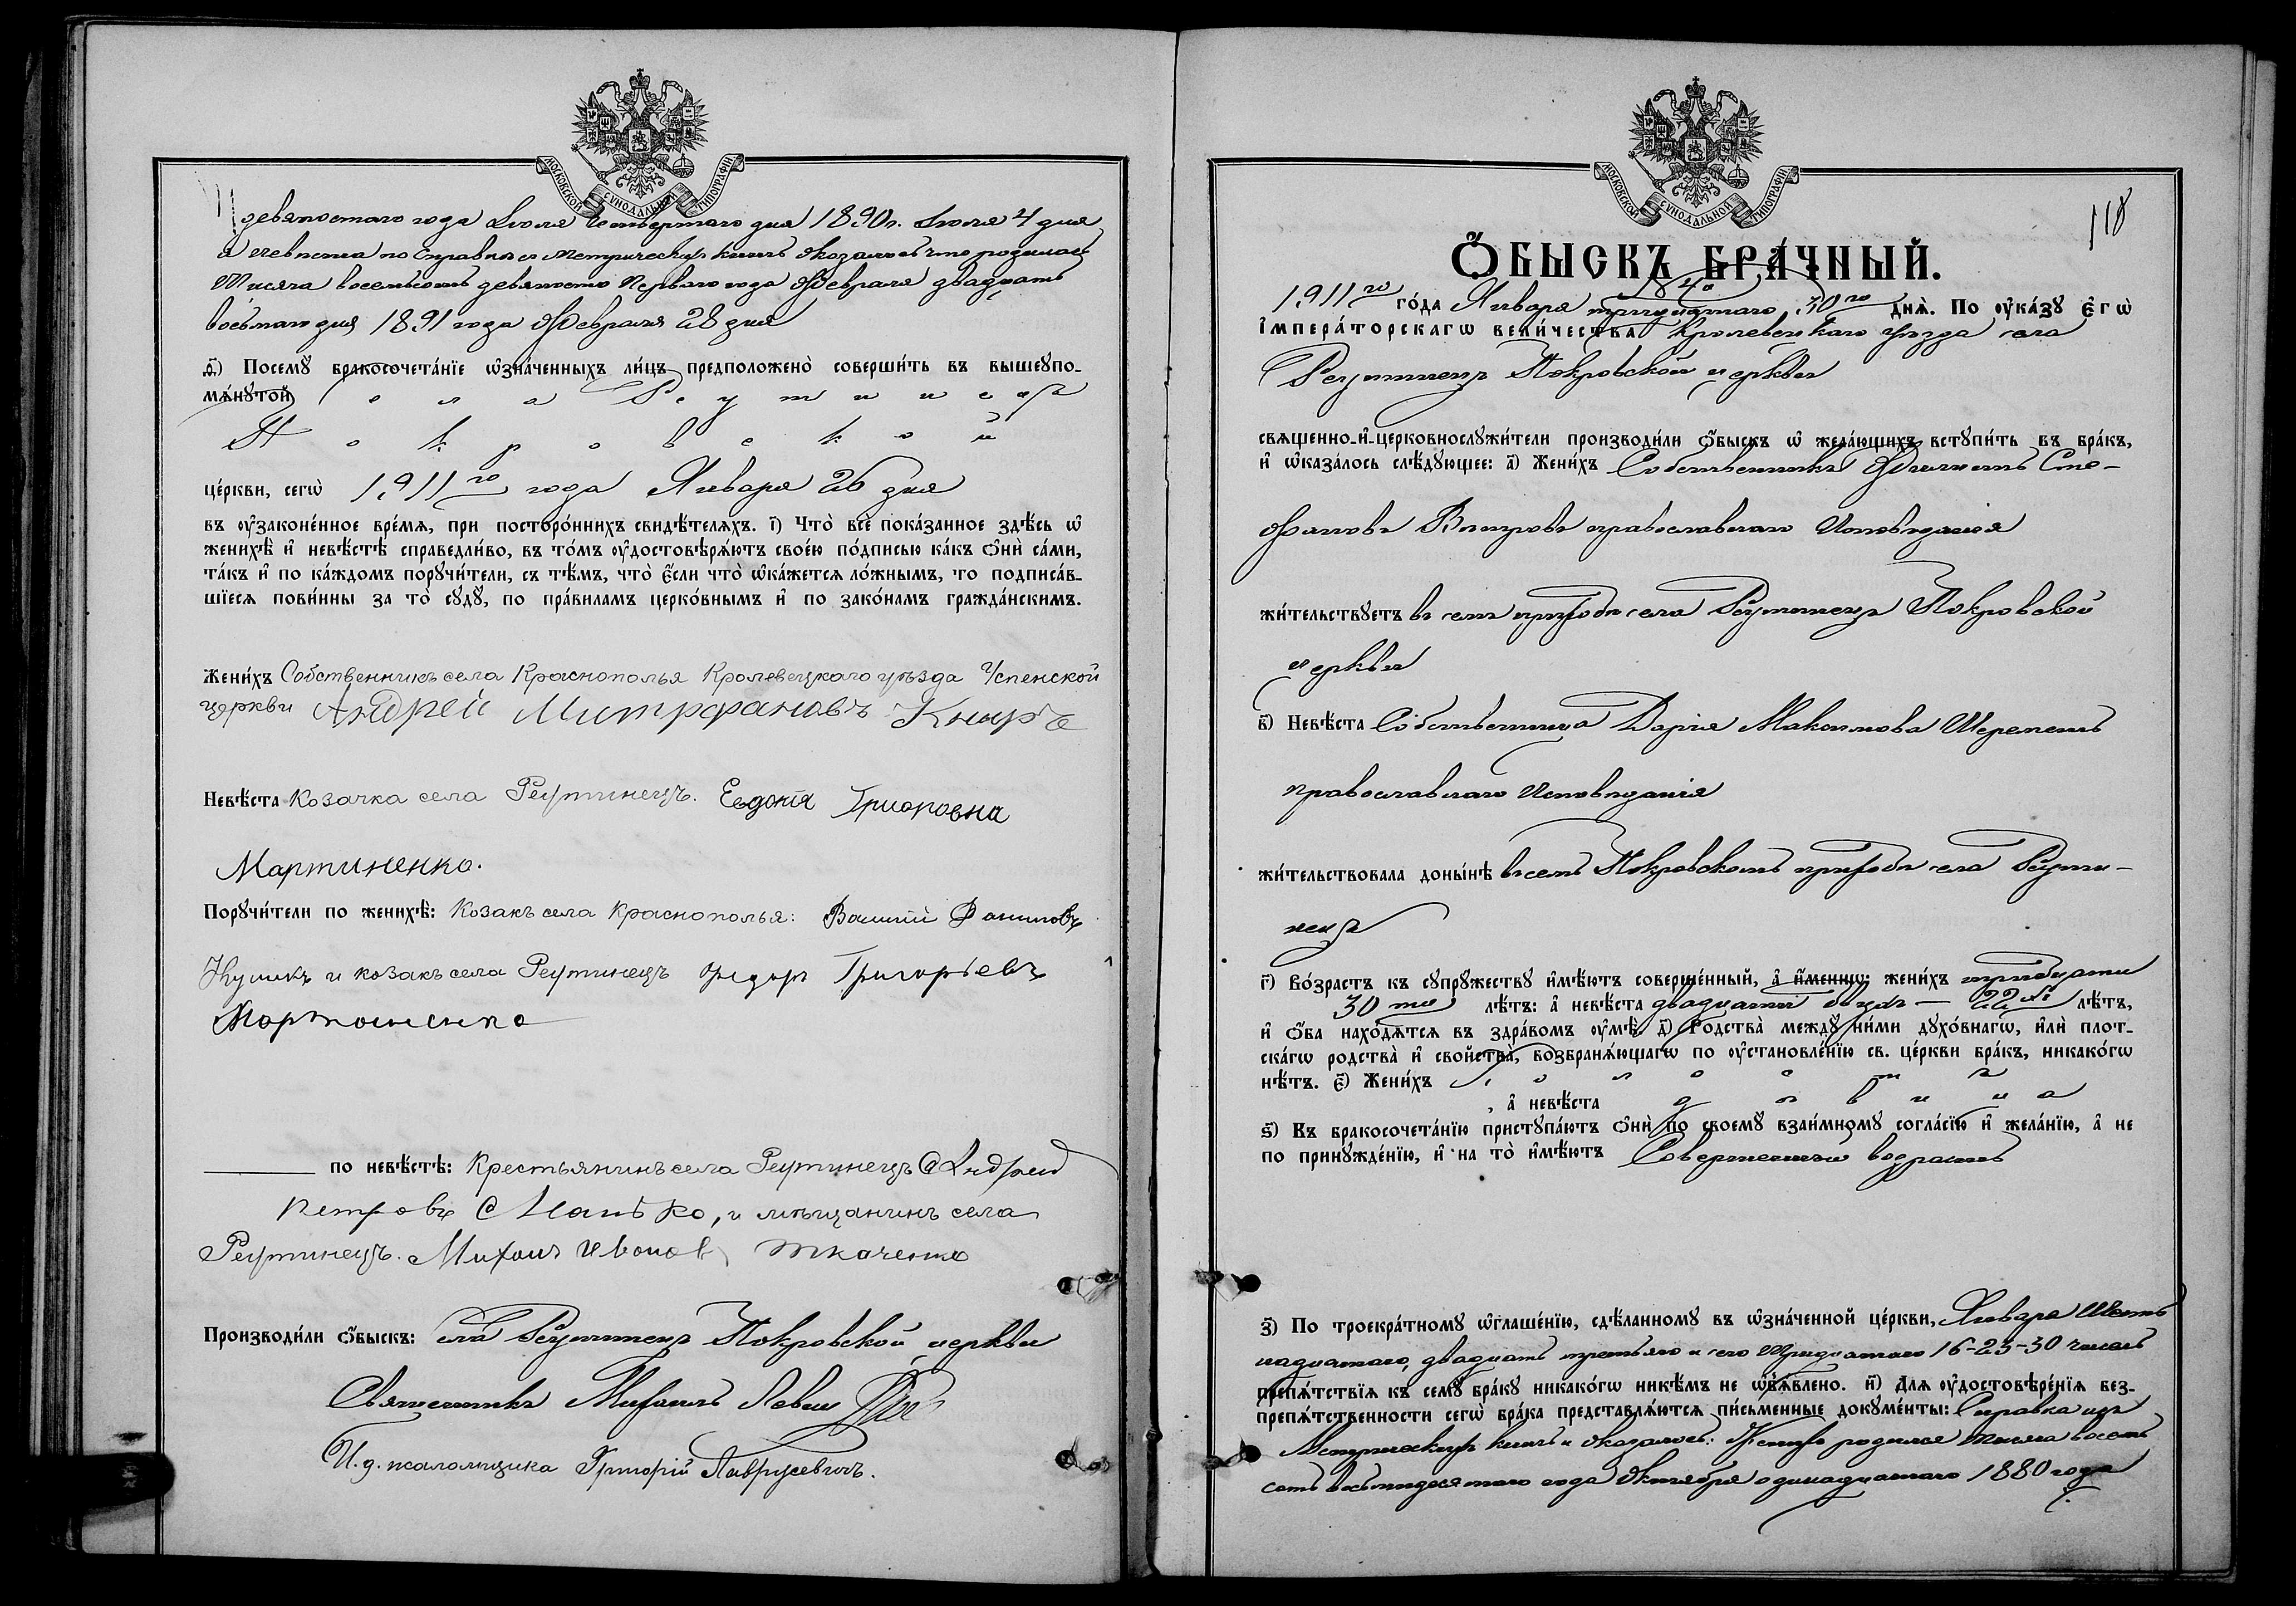 МОСКОВСКОЙ СѴНОДАЛЬНОЙ ТИПОГРАФІИ
девяностаго года Іюля Четвертаго дня 1890 г. Іюля 4 дня
а невѣста по справкѣ въ Метрическихъ книгахъ оказалось что родилась
Тысяча восемьсотъ девяносто Перваго года Февраля двадцать
восьмаго дня 1891 года Февраля 28 дня
ѳ҃) Посемꙋ бракосочета́нїе ѡ҆зна́ченныхъ ли́цъ предположено̀ соверши́ть въ вышеꙋпо-
мѧ́нꙋтой села Реутинецъ
Покровской
це́ркви, сегѡ̀ 1911го года Января 26 дня
въ ᲂу҆законе́нное вре́мѧ, при посторо́ннихъ свидѣ́телѧхъ. і҃) Что̀ всѐ пока́занное здѣ́сь ѡ҆
женихѣ̀ и҆ невѣ́стѣ справедли́во, въ то́мъ ᲂу҆достовѣрѧ́ютъ свое́ю по́дписью ка́къ ѻ҆нѝ са́ми,
та́къ и҆ по ка́ждомъ порꙋчи́тели, съ тѣ́мъ, что̀ є҆́сли что̀ ѡ҆ка́жетсѧ ло́жнымъ, то подписа́в-
шїесѧ пови́нны за то̀ сꙋдꙋ̀, по пра́виламъ церко́внымъ и҆ по зако́намъ гражда́нскимъ.
Жени́хъ Собственникъ села Краснополья Кролевецкаго уѣзда Успенской
церкви Андрей Митрофановъ Кнырь
Невѣ́ста Козачка села Реутинецъ. Евдокія Григоровна
Мартиненко.
Порꙋчи́тели по женихѣ̀: Козакъ села Краснополья: Василій Даниловъ
и козакъ села Реутинецъ Федоръ Григорьевъ
Мартыненко
по невѣ́стѣ: Крестьянинъ села Реутинецъ Андрей
Петровъ Манько, и мѣщанинъ села
Реутинецъ. Михаилъ Ивановъ Ткаченко
Производи́ли ѻ҆́быскъ: села Реутинецъ Покровской церкви
Священникъ Михаилъ Левицкій
И. д. псаломщика Григорій Лаврусевичъ.
МОСКОВСКОЙ СѴНОДАЛЬНОЙ ТИПОГРАФІИ
118
Ѻ҆́БЫСКЪ БРА́ЧНЫЙ.
1911го го́да Января тридцатаго 30го днѧ̀. По ᲂу҆ка́зꙋ є҆гѡ̀
і҆мпера́торскагѡ вели́чества Кролевецкаго уѣзда села
Реутинецъ Покровской церкви
свѧще́нно-и҆-церковнослꙋжи́тели производи́ли ѻ҆́быскъ ѡ҆ жела́ющихъ встꙋпи́ть въ бра́къ,
и҆ ѡ҆каза́лось слѣ́дꙋющее: а҃) Жени́хъ Собственникъ Филиппъ Сте-
фановъ православнаго Исповѣданія
жи́тельствꙋетъ въ семъ приходѣ села Реутинецъ Покровской
церкви
в҃) Невѣ́ста Собственница Дарія Максимова Шереметъ
православнаго Исповѣданія
жи́тельствовала доны́нѣ въ семъ Покровскомъ приходѣ села Реути-
нецъ
г҃) Во́зрастъ къ сꙋпрꙋжествꙋ и҆мѣ́ютъ соверше́нный, а҆ и҆́меннѡ: жени́хъ тридцати
30 ти лѣ́тъ: а҆ невѣ́ста двадцати двухъ — 22хъ лѣ́тъ,
и҆ ѻ҆́ба нахо́дѧтсѧ въ здра́вомъ ᲂу҆мѣ̀. д҃) Родства̀ междꙋ ни́ми дꙋхо́внагѡ, и҆лѝ плот-
ска́гѡ родства̀ и҆ свойства̀, возбранѧ́ющагѡ по ᲂу҆становле́нїю св. це́ркви бра́къ, никако́гѡ
нѣ́тъ. є҃) Жени́хъ холостъ
, а҆ невѣ́ста дѣвица
ѕ҃) Въ бракосочета́нїю пристꙋпа́ютъ ѻ҆нѝ по своемꙋ̀ взаи́мномꙋ согла́сїю и҆ жела́нїю, а҆ не
по принꙋжде́нїю, и҆ на то̀ и҆мѣ́ютъ Совершенный возрастъ
з҃) По троекра́тномꙋ ѡ҆глаше́нїю, сдѣ́ланномꙋ въ ѡ҆зна́ченной це́ркви, Января Шест-
надцатаго, двадцать третьяго и сего тридцатаго 16-23-30 чиселъ
препѧ́тствїѧ къ семꙋ̀ бра́кꙋ никако́гѡ никѣ́мъ не ѡ҆б̾ѧ́влено. и҃) Длѧ ᲂу҆достовѣре́нїѧ без-
препѧ́тственности сегѡ̀ бра́ка представлѧ́ютсѧ пи́сьменные докꙋме́нты: Справка изъ
Метрическихъ книгъ и оказалось: Женихъ родился тысяча восем-
сотъ восьмидесятаго года Октября одинадцатаго 1880 года